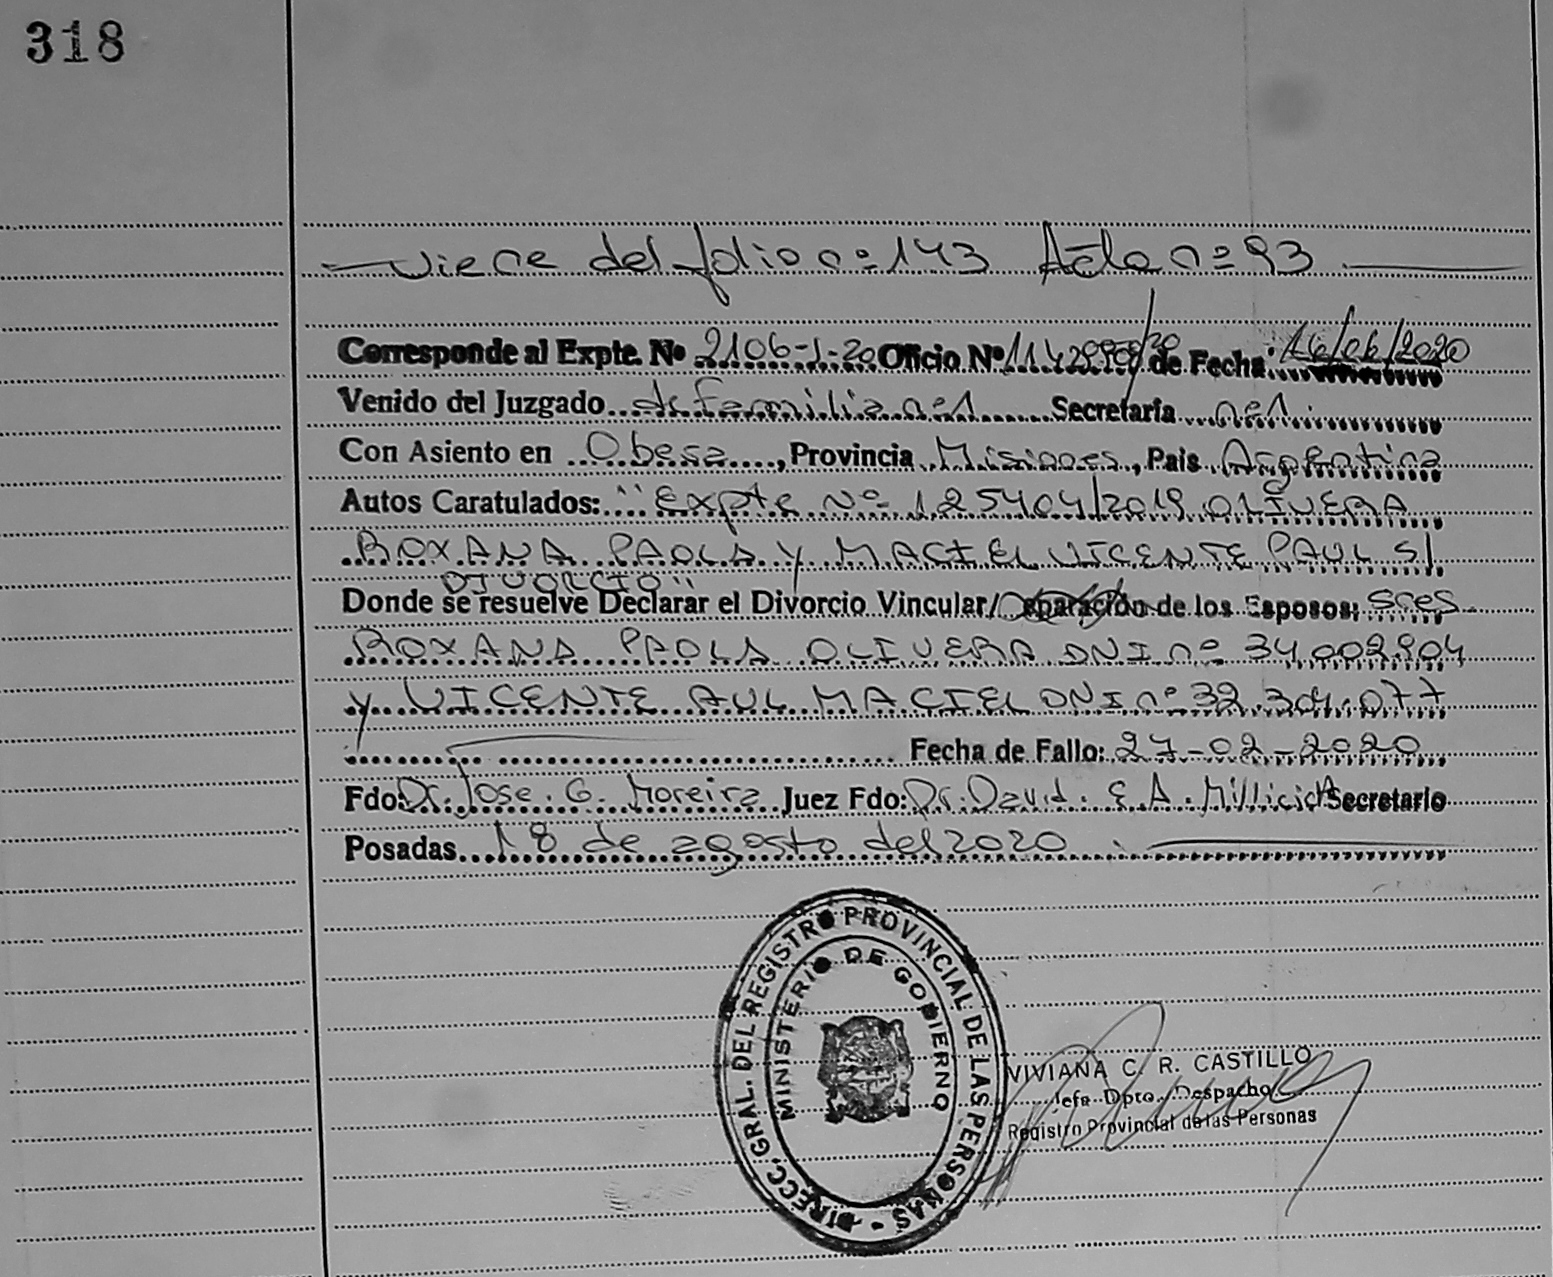 318
Viene del folio nº 143 Acta nº 93
Corresponde al Expte. Nº 2106-1-20 Oficio Nº /20 de Fecha: 16/06/2020
Venido del Juzgado de familia nº1 Secretaría nº1
Con Asiento en Obera, Provincia Misiones, Pais Argentina
Autos Caratulados: "Expte Nº 125404/2019 OLIVERA
ROXANA PAOLA Y MACIEL VICENTE PAUL S/
DIVORCIO"
Donde se resuelve Declarar el Divorcio Vincular/ Separación de los Esposos: Sres
ROXANA PAOLA OLIVERA DNI nº 34.002.904
y VICENTE AUL MACIEL DNI nº 32.304.077
Fecha de Fallo: 27-02-2020
Fdo: Dr. Jose G. Moreira Juez Fdo: Dr. David E A Secretario
Posadas 18 de agosto del 2020
DIRECC. GRAL. DEL REGISTRO PROVINCIAL DE LAS PERSONAS -
MINISTERIO DE GOBIERNO
VIVIANA C. R. CASTILLO
Jefa Dpto. Despacho
Registro Provincial de las Personas